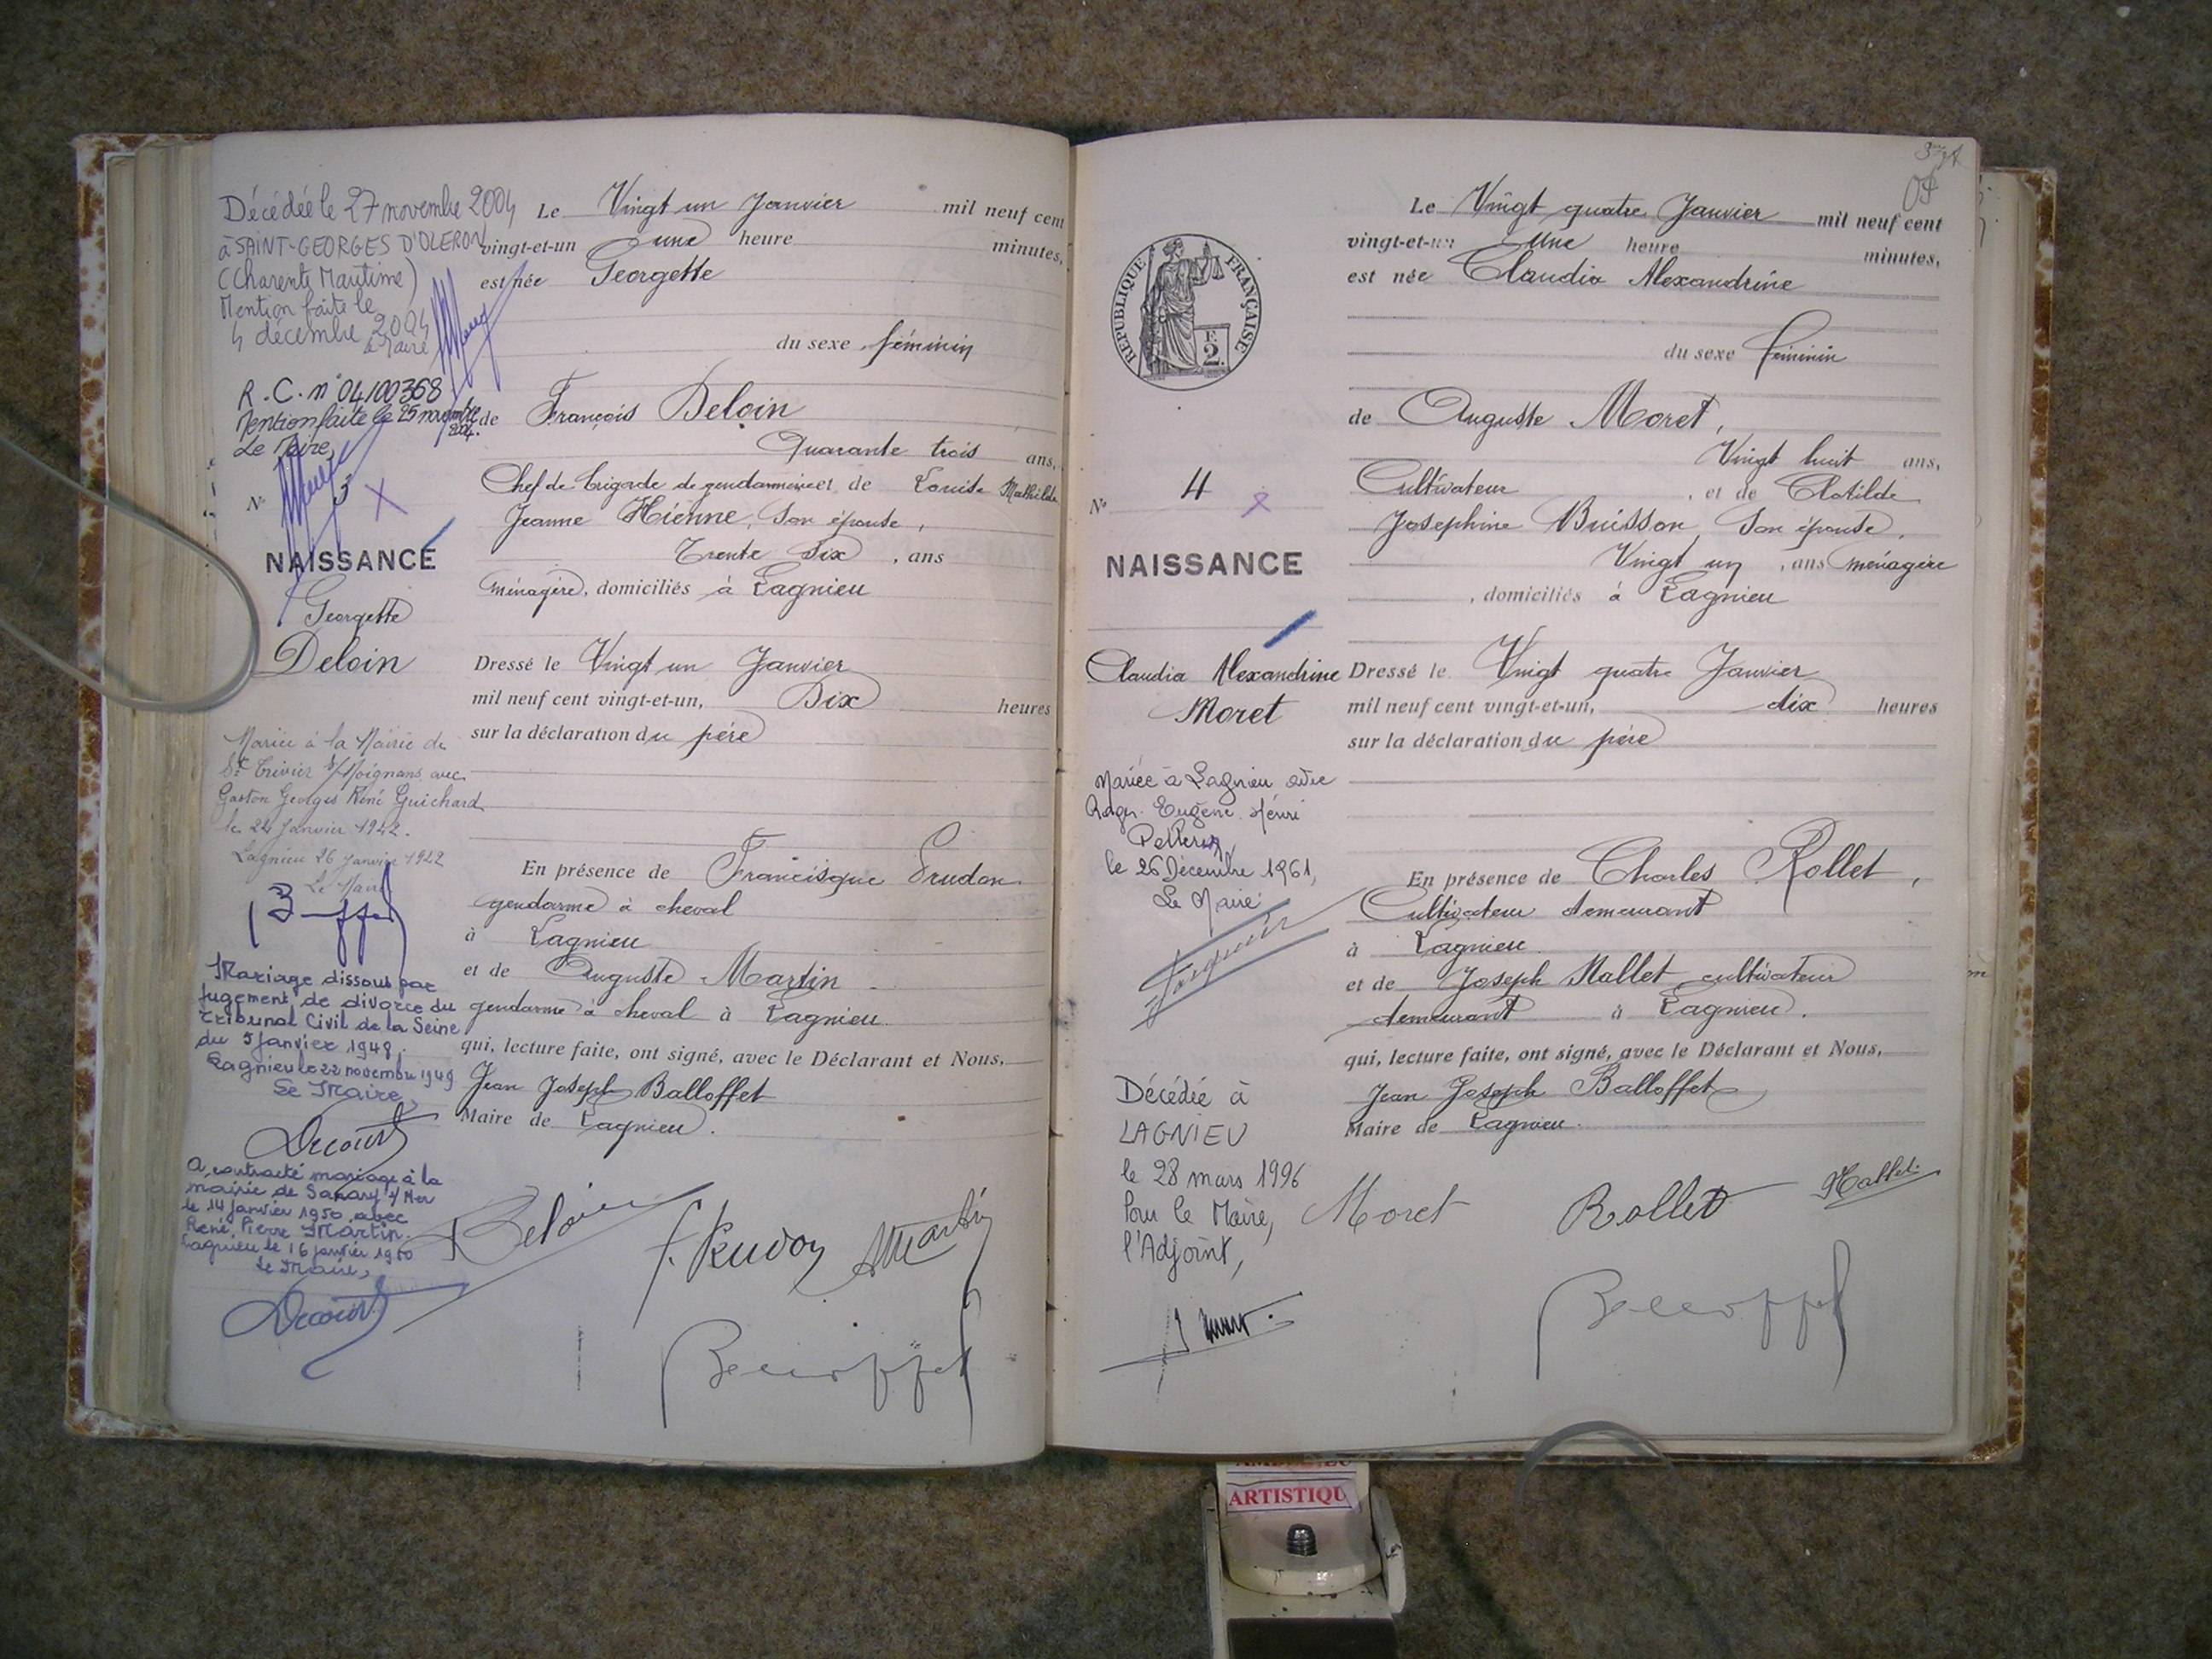 Décédée le 27 novembre 2004
à SAINT-GEORGES D'OLERON
(Charente Maritime)
Mention faite le
4 décembre 2004
le Maire
R.C. n° 04/00368
Mention faite le 25 novembre
2004.
Le Maire,
N° 3
NAISSANCE
Georgette
Deloin
Mariée à la Mairie de
St Trivier s/Moignans avec
Gaston Georges René Guichard
le 24 Janvier 1942.
Lagnieu 26 Janvier 1942
Le Maire
Mariage dissous par
jugement de divorce du
Tribunal Civil de la Seine
du 5 Janvier 1948.
Lagnieu le 22 novembre 1949
Le Maire,
Decourt
A contracté mariage à la
mairie de Sanary s/Mer
le 14 janvier 1950 avec
René Pierre Martin.
Lagnieu le 16 janvier 1950
Le Maire,
Decourt
Le Vingt un Janvier mil neuf cent
vingt-et-un une heure minutes,
est née Georgette
du sexe féminin
de François Deloin
Quarante trois ans,
Chef de brigade de gendarmerie et de Louise Mathilde
Jeanne Hienne, Son épouse,
Trente Six, ans
ménagère, domiciliés à Lagnieu
Dressé le Vingt un Janvier
mil neuf cent vingt-et-un, Dix heures
sur la déclaration du père
En présence de Francisque Prudon
gendarme à cheval
à Lagnieu
et de Auguste Martin
gendarme à cheval à Lagnieu
qui, lecture faite, ont signé, avec le Déclarant et Nous,
Jean Joseph Balloffet
Maire de Lagnieu.
Deloin F. Prudon AMartin
Balloffet
RÉPUBLIQUE FRANÇAISE
F.
2.
N° 4
NAISSANCE
Claudia Alexandrine
Moret
Mariée à Lagnieu avec
Roger Eugène Henri
le 26 Décembre 1961,
Le Maire
Décédée à
LAGNIEU
le 28 mars 1996
Pour le Maire,
l'Adjoint,
Le Vingt quatre Janvier mil neuf cent
vingt-et-un Une heure minutes,
est née Claudia Alexandrine
du sexe féminin
de Auguste Moret,
Vingt huit ans,
Cultivateur, et de Clotilde
Josephine Buisson, Son épouse,
Vingt un, ans ménagère
, domiciliés à Lagnieu
Dressé le Vingt quatre Janvier
mil neuf cent vingt-et-un, dix heures
sur la déclaration du père
En présence de Charles Rollet,
Cultivateur demeurant
à Lagnieu
et de Joseph Mallet cultivateur
demeurant à Lagnieu.
qui, lecture faite, ont signé, avec le Déclarant et Nous,
Jean Joseph Balloffet
Maire de Lagnieu.
Moret Rollet Mallet
Balloffet
ARTISTIQU